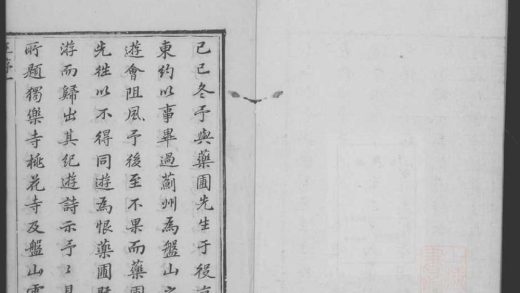 己巳冬予與藥圃先生于役京
東約以事畢過薊州為盤山之
遊會阻風予後至不果而藥圃
先往以不得同遊為恨藥圃
游而歸出其紀遊詩示予〻見
所題獨樂寺桃花寺及盤山雲